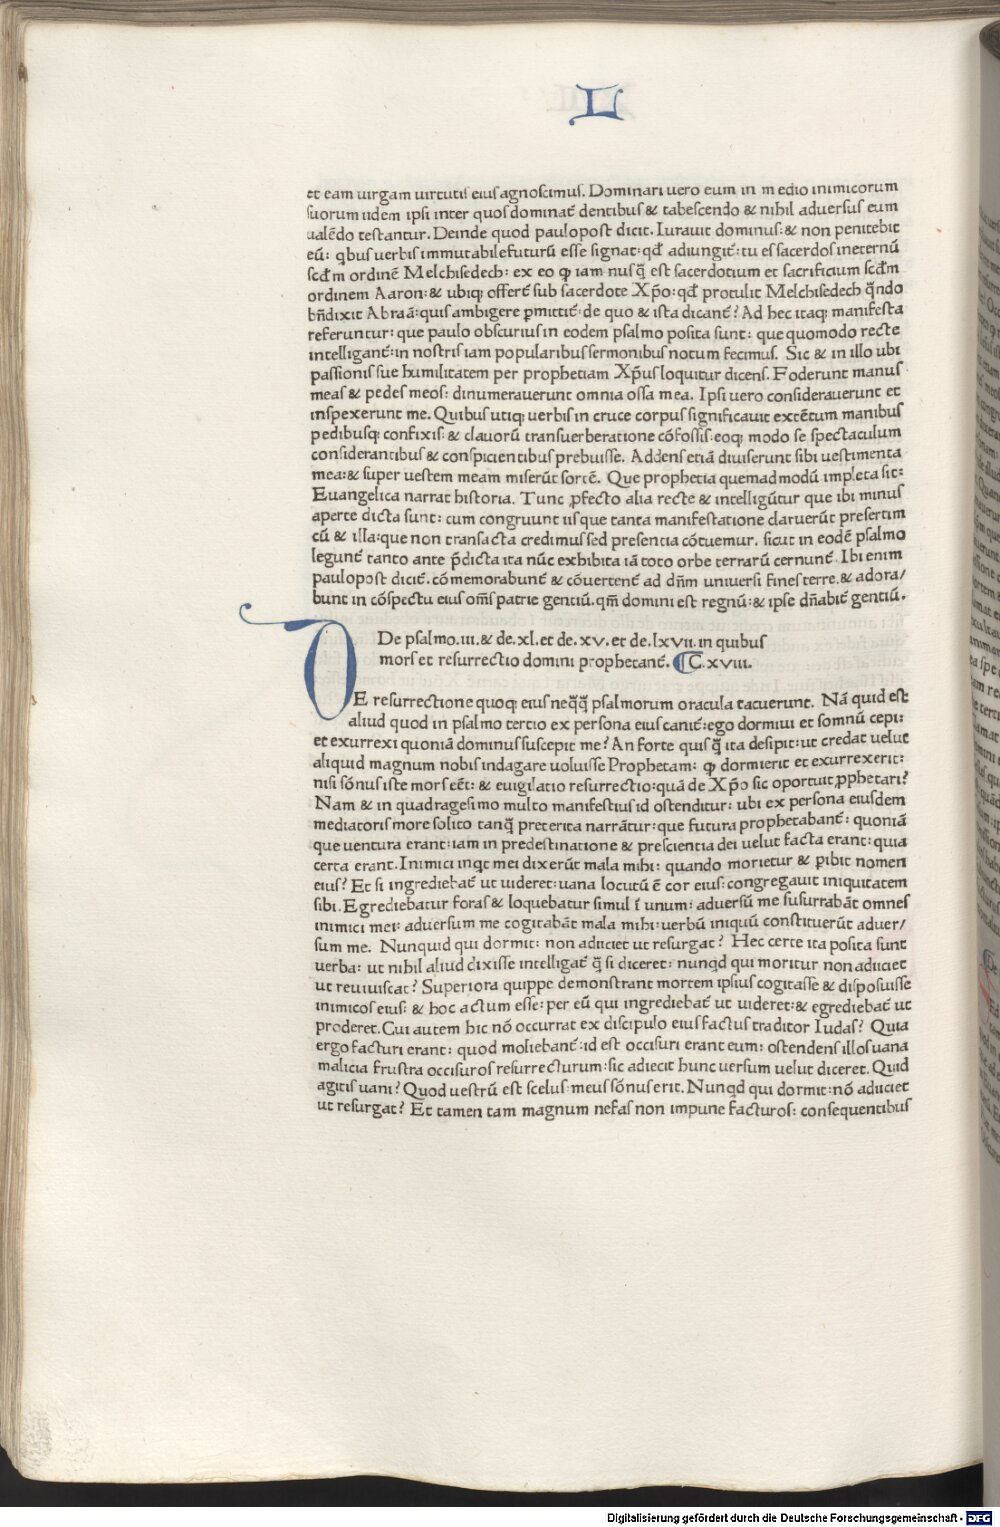 L
et eam uirgam uirtutis eius agnoscimus. Dominari uero eum in medio inimicorum
suorum iidem ipsi inter quos dominat̄ dentibus & tabescendo & nihil aduersus eum
ualēdo testantur. Deinde quod paulopost dicit. Iurauit dominus: & non penitebit
eū: qbus uerbis immutabile futurū esse signat: qđ adiungit̄: tu es sacerdos ineternū
scđm ordinē Melchisedech: ex eo ꝙ iam nusq̄ est sacerdotium et sacrificium scđm
ordinem Aaron: & ubiqꝫ offert̄ sub sacerdote Xp̄o: qđ protulit Melchisedech q̄ndo
bn̄dixit Abraā: quis ambigere ꝑmittit̄ de quo & ista dicant̄? Ad hec itaqꝫ manifesta
referuntur: que paulo obscurius in eodem psalmo posita sunt: que quomodo recte
intelligant̄: in nostris iam popularibus sermonibus notum fecimus. Sic & in illo ubi
passionis sue humilitatem per prophetiam Xp̄us loquitur dicens. Foderunt manus
meas & pedes meos: dinumerauerunt omnia ossa mea. Ipsi uero considerauerunt et
inspexerunt me. Quibus utiqꝫ uerbis in cruce corpus significauit extētum manibus
pedibusqꝫ confixis: & clauorū transuerberatione cōfossis: eoqꝫ modo se spectaculum
considerantibus & conspicientibus prebuisse. Addens etiā diuiserunt sibi uestimenta
mea: & super uestem meam miserūt sortē. Que prophetia quemadmodū impleta sit:
Euangelica narrat historia. Tunc ꝓfecto alia recte & intelligūtur que ibi minus
aperte dicta sunt: cum congruunt iis que tanta manifestatione claruerūt presertim
cū & illa: que non transacta credimus sed presentia cōtuemur. sicut in eodē psalmo
legunt̄ tanto ante p̄dicta ita nūc exhibita iā toto orbe terrarū cernunt̄. Ibi enim
paulopost dicit̄. cōmemorabunt̄ & cōuertent̄ ad dn̄m uniuersi fines terre. & adora/
bunt in cōspectu eius om̄s patrie gentiū. qm̄ domini est regnū: & ipse dn̄abit̄ gentiū.
De psalmo. iii. & de. xl. et de. xv. et de. lxvii. in quibus
mors et resurrectio domini prophetant̄. ¶ C. xviii.
DE resurrectione quoqꝫ eius neq̄q̄ psalmorum oracula tacuerunt. Nā quid est
aliud quod in psalmo tertio ex persona eius canit̄: ego dormiui et somnū cepi:
et exurrexi quoniā dominus suscepit me? An forte quisq̄ ita desipit: ut credat uelut
aliquid magnum nobis indagare uoluisse Prophetam: ꝙ dormierit et exurrexerit:
nisi sōnus iste mors eēt: & euigilatio resurrectio: quā de Xp̄o sic oportuit ꝓphetari?
Nam & in quadragesimo multo manifestius id ostenditur: ubi ex persona eiusdem
mediatoris more solito tanq̄ preterita narrātur: que futura prophetabant̄: quoniā
que uentura erant: iam in predestinatione & prescientia dei uelut facta erant: quia
certa erant. Inimici inqt mei dixerūt mala mihi: quando morietur & ꝑibit nomen
eius? Et si ingrediebat̄ ut uideret: uana locutū ē cor eius: congregauit iniquitatem
sibi. Egrediebatur foras & loquebatur simul ī unum: aduersū me susurrabāt omnes
inimici mei: aduersum me cogitabāt mala mihi: uerbū iniquū constituerūt aduer/
sum me. Nunquid qui dormit: non adiiciet ut resurgat? Hec certe ita posita sunt
uerba: ut nihil aliud dixisse intelligat̄ q̄ si diceret: nunqd qui moritur non adiiciet
ut reuiuiscat? Superiora quippe demonstrant mortem ipsius cogitasse & disposuisse
inimicos eius: & hoc actum esse: per eū qui ingrediebat̄ ut uideret: & egrediebat̄ ut
proderet. Cui autem hic nō occurrat ex discipulo eius factus traditor Iudas? Quia
ergo facturi erant: quod moliebant̄: id est occisuri erant eum: ostendens illos uana
malicia frustra occisuros resurrecturum: sic adiecit hunc uersum uelut diceret. Quid
agitis uani? Quod uestrū est scelus: meus sōnus erit. Nunqd qui dormit: nō adiiciet
ut resurgat? Et tamen tam magnum nefas non impune facturos: consequentibus
Digitalisierung gefördert durch die Deutsche Forschungsgemeinschaft - DFG